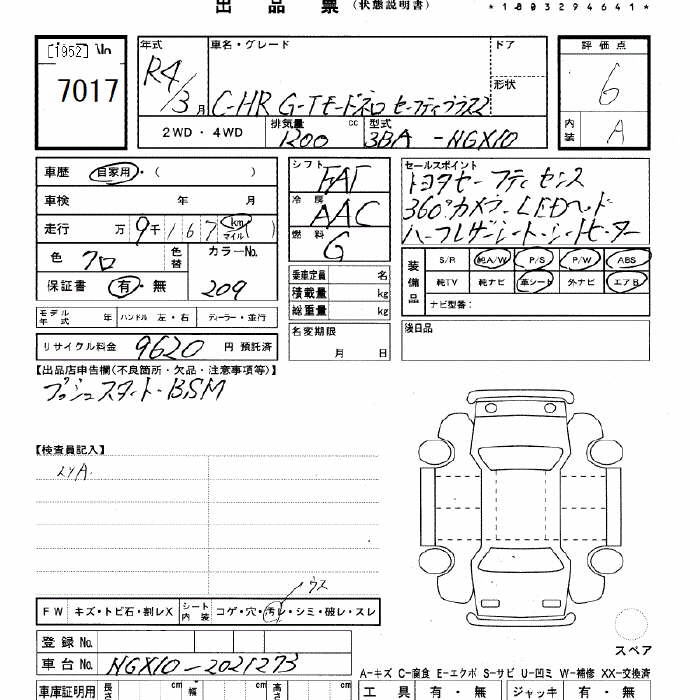 出品票（状態説明書）
*1803294641*
[1952]
7017
年式 R4/3月
車名・グレード
C-HR G-Tモードネロ セーフティプラス2
ドア
形状
評価点 6
内装 A
2WD・4WD
排気量 1200 cc
型式 3BA-NGX10
車歴 自家用・( )
車検 年 月
走行 万9千167 km マイル ( )
色 クロ
色替
カラーNo. 209
保証書 有・無
シフト FAT
冷房 AAC
燃料 G
乗車定員 名
積載量 kg
総重量 kg
セールスポイント
トヨタセーフティセンス
360°カメラ・LEDヘッド
ハーフレザーシート・シートヒーター
装備品
S/R 純A/W P/S P/W ABS
純TV 純ナビ 革シート 外ナビ エアB
ナビ型番：
モデル年式 年 ハンドル 左・右 ディーラー・並行
名変期限 月 日
後日品
リサイクル料金 9620 円 預託済
【出品店申告欄(不良箇所・欠品・注意事項等)】
プッシュスタート・BSM
【検査員記入】
ウス
FW キズ・トビ石・割レX シート内装 コゲ・穴・汚レ・シミ・破レ・スレ
スペア
登録No.
車台No. NGX10-2021273
A-キズ C-腐食 E-エクボ S-サビ U-凹ミ W-補修 XX-交換済
車庫証明用 長さ cm 幅 cm 高さ cm
工具 有・無 ジャッキ 有・無